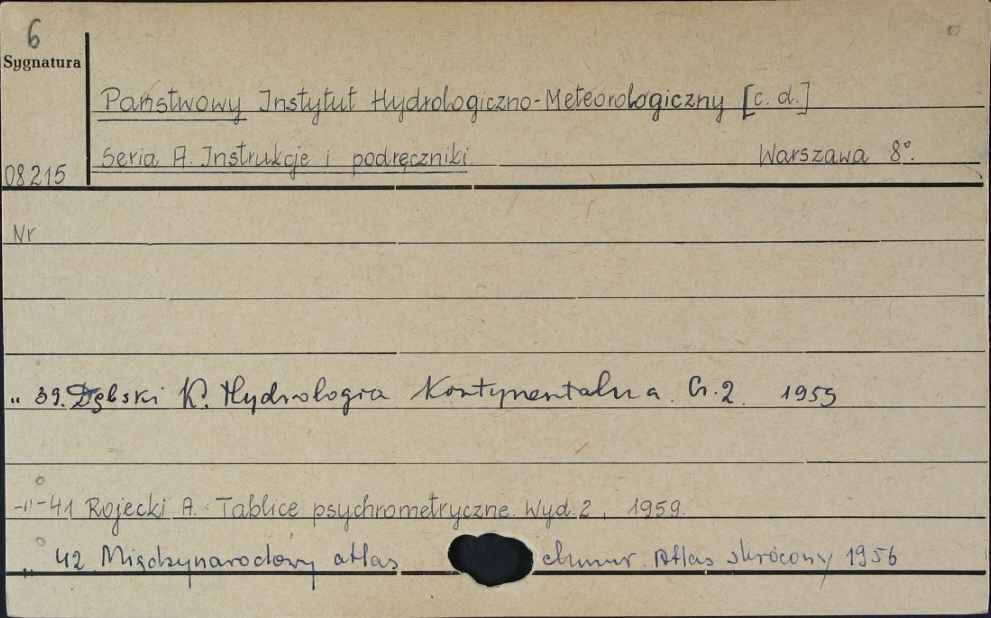 6
Sygnatura
Państwowy Instytut Hydrologiczno-Meteorologiczny [c. d.]
Seria A. Instrukcje i podręczniki Warszawa 8°.
08215
Nr
" 39. Dębski K. Hydrologia Kontynentalna. Cz. 2. 1959
-"-41 Rojecki A. Tablice psychrometryczne. Wyd. 2, 1959.
" 42. Międzynarodowy atlas chmur. Atlas skrócony 1956